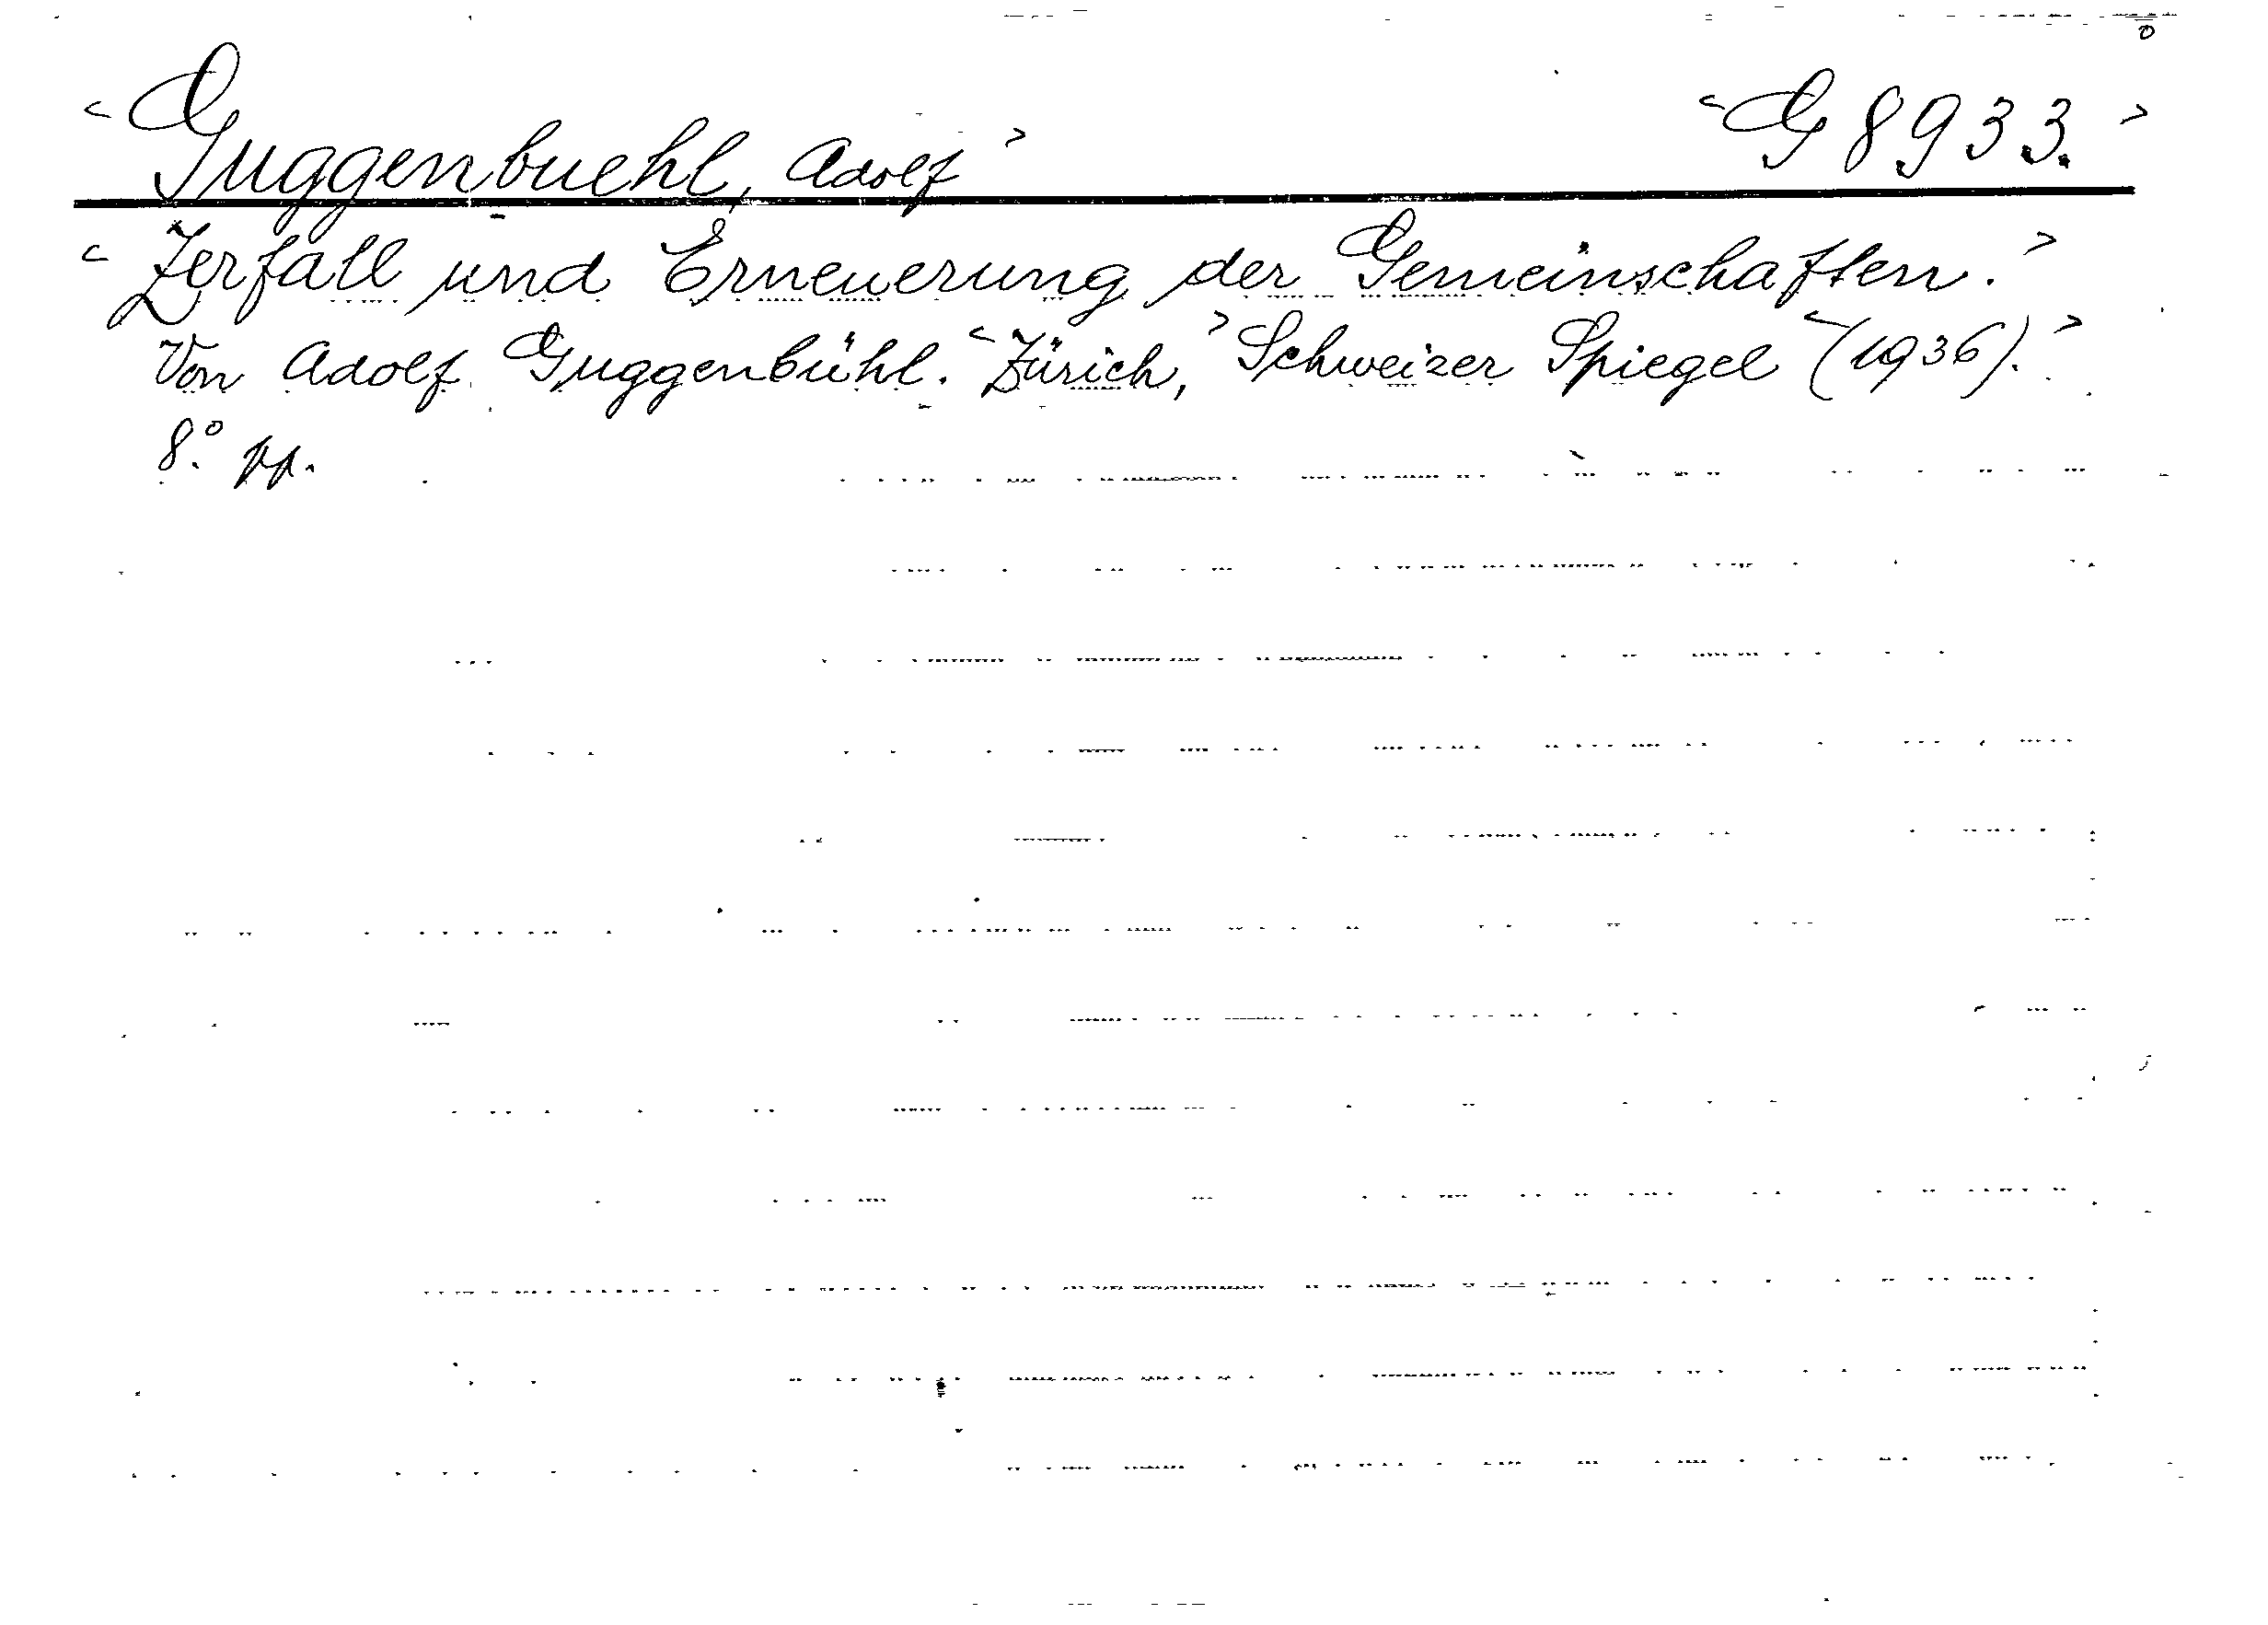 <Guggenbuehl, Adolf> <G 8933.>
<Zerfall und Erneuerung der Gemeinschaften.>
Von Adolf Guggenbühl. <Zürich,> Schweizer Spiegel <(1936).>
8.° pp.